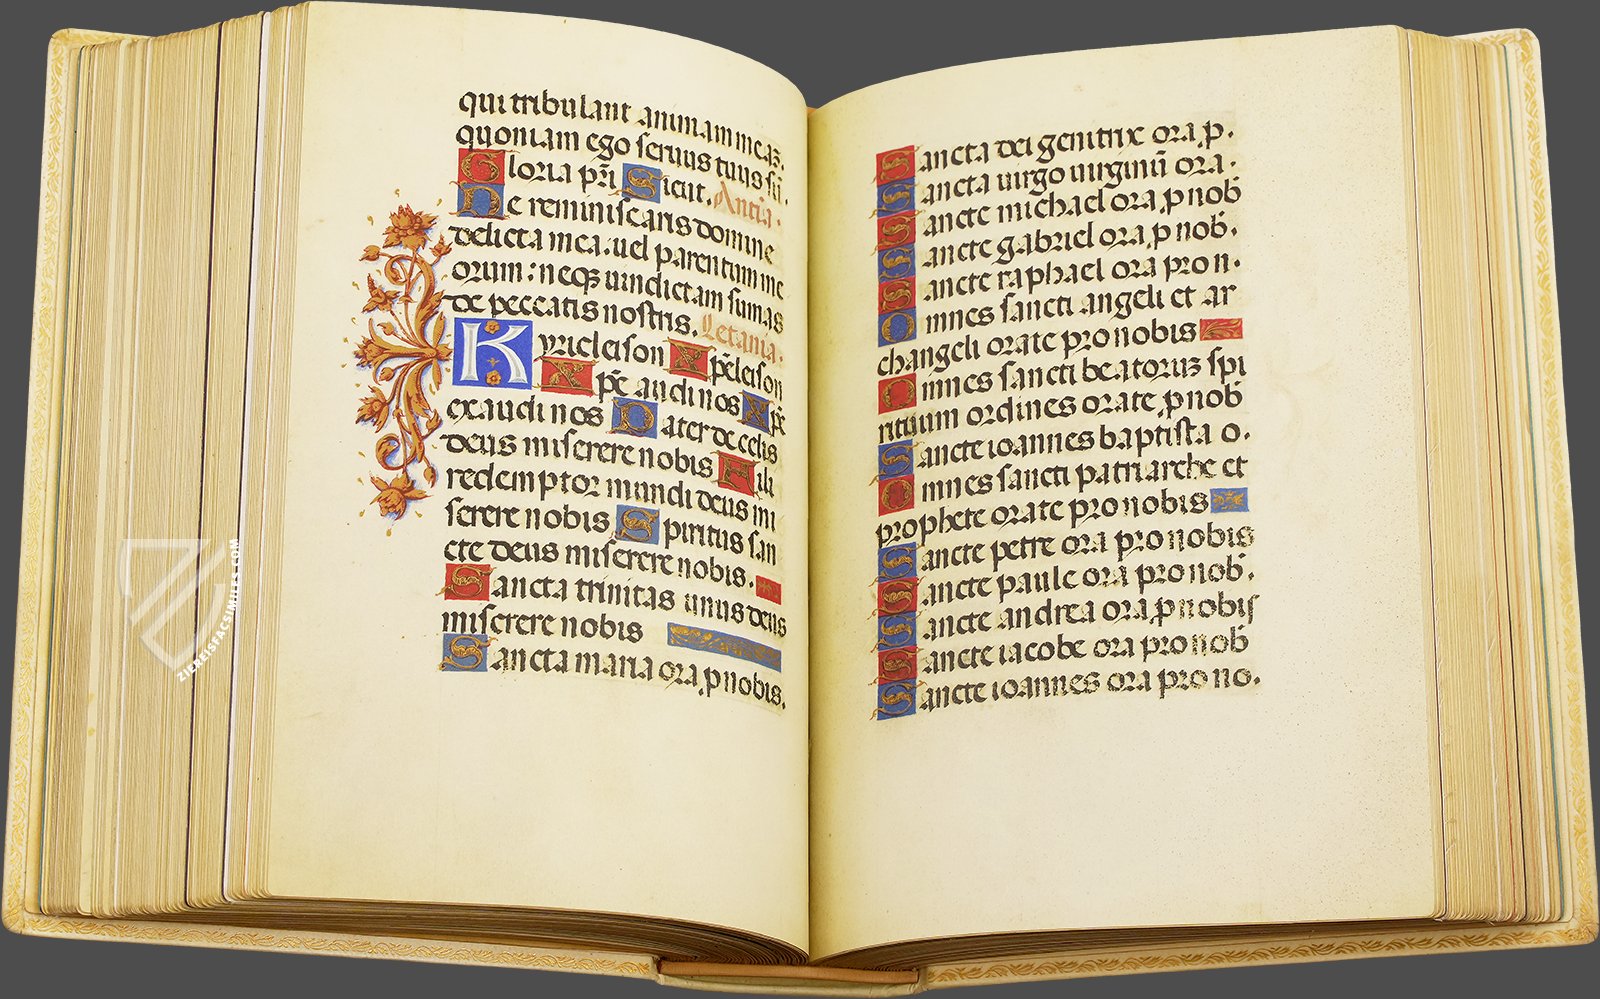 qui tribulant animam meaꝫ.
quoniam ego seruus tuus sū.
Gloria pr̄i Sicut. Antia.
Ne reminiscaris domine
delicta mea. uel parentum me
orum: neqꝫ uindictam sumas
de peccatis nostris. Letania.
Kyrieleison Xp̄eleison
Xp̄e audi nos Xp̄e
exaudi nos Pater de celis
deus miserere nobis Fili
redemptor mundi deus mi
serere nobis Spiritus san
cte deus miserere nobis.
Sancta trinitas unus deus
miserere nobis
Sancta maria ora ꝓ nobis.
Sancta dei genitrix ora ꝓ.
Sancta uirgo uirginū ora.
Sancte michael ora ꝓ nob̄
Sancte gabriel ora ꝓ nob̄.
Sancte raphael ora pro n.
Omnes sancti angeli et ar
changeli orate pro nobis
Omnes sancti beatorum spi
rituum ordines orate ꝓ nob̄
Sancte ioannes baptista o.
Omnes sancti patriarche et
prophete orate pro nobis
Sancte petre ora pro nobis
Sancte paule ora pro nob̄.
Sancte andrea ora ꝓ nobis
Sancte iacobe ora pro nob̄
Sancte ioannes ora pro no.
ZIEREISFACSIMILES.COM